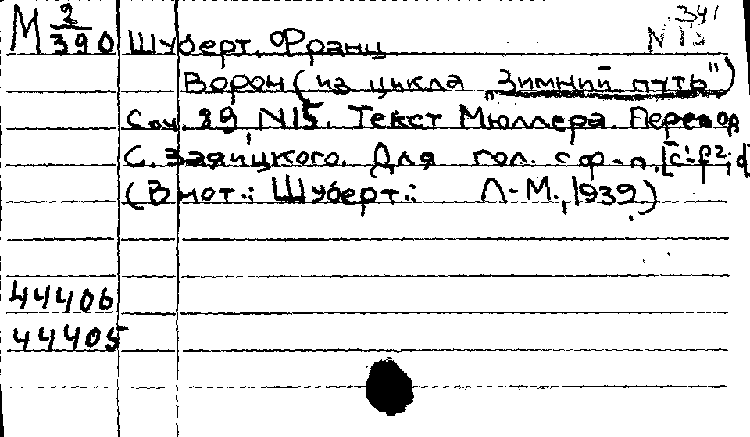 М 2/390 Шуберт, Франц N15 341
Ворон (из цикла "Зимний путь")
Соч. 89, N15. Текст Мюллера. Перевод
С. Заяицкого. Для гол. с ф-п. [c¹-f²; d]
(В нот.: Шуберт.: Л-М., 1939)
44406
44405